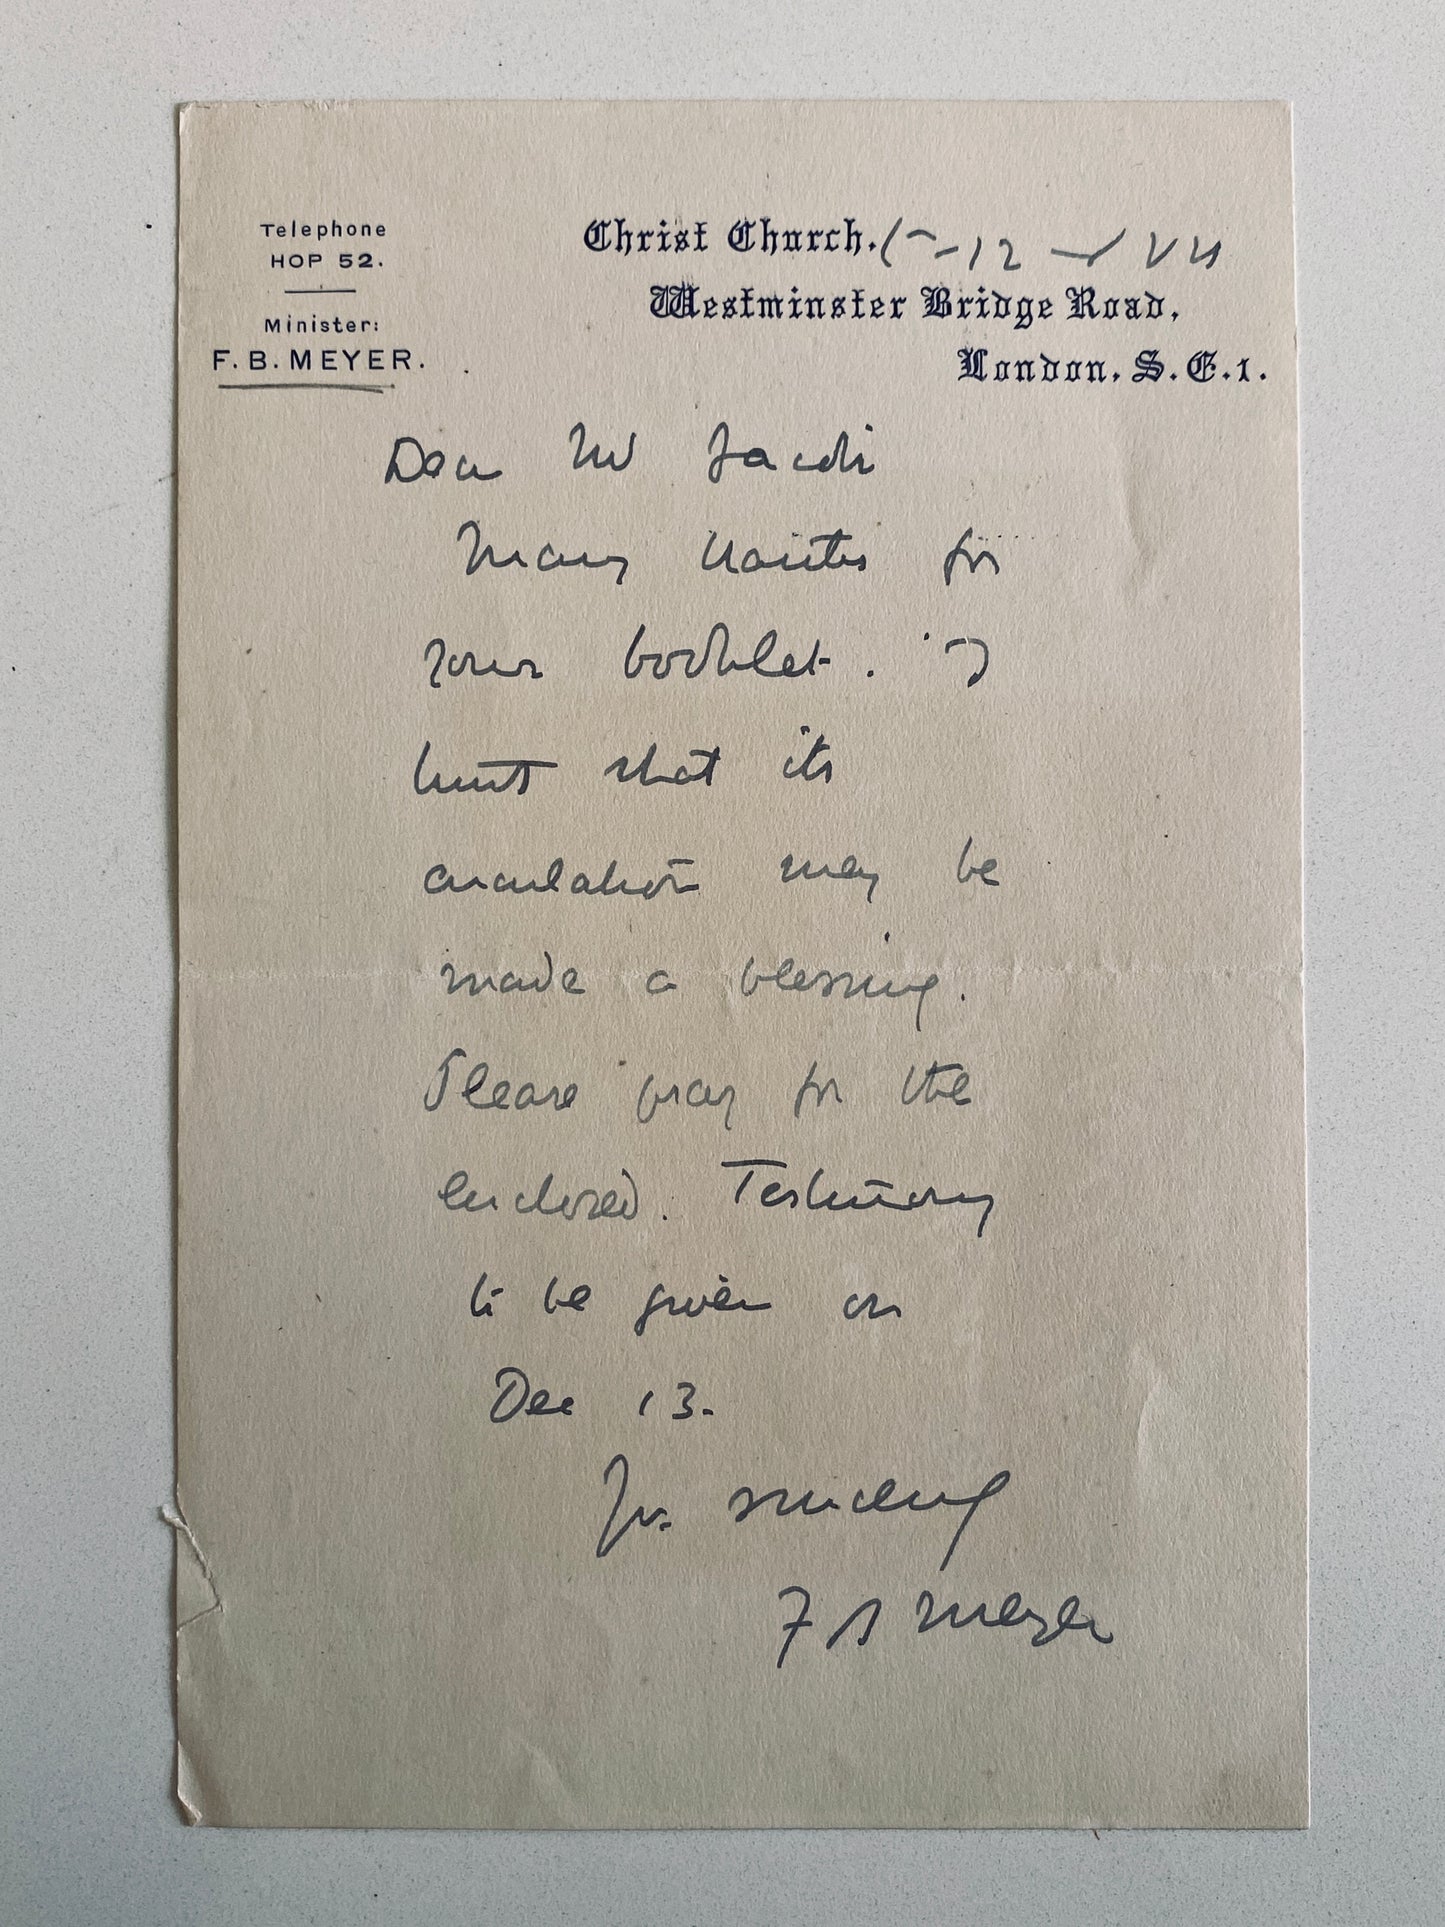 Telephone
HOP 52.
Minister:
F. B. MEYER.
Christ Church.
Westminster Bridge Road,
London, S.E.1.
Dear Mr
Many thanks for
your booklet. I
trust that its
circulation may be
made a blessing.
Please pray for the
enclosed. Testimony
to be given on
Dec 13.
Yrs. sincerely
F B Meyer